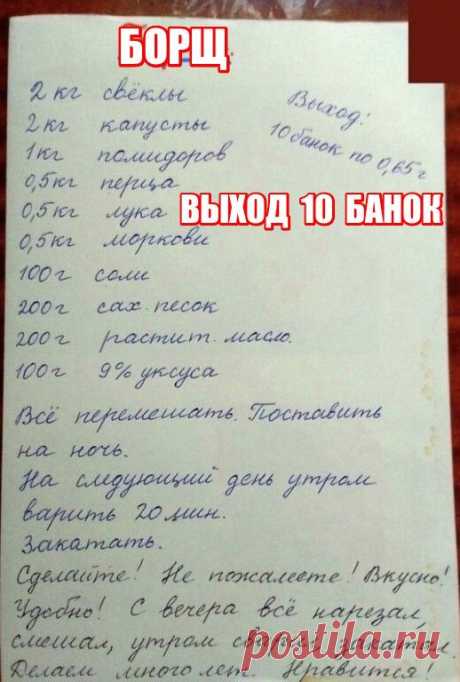 БОРЩ
2 кг свёклы
2 кг капусты
1 кг помидоров
0,5 кг перца
0,5 кг лука
0,5 кг моркови
100 г соли
200 г сах. песок
200 г растит. масло.
100 г 9% уксуса
Выход:
10 банок по 0,65 г
ВЫХОД 10 БАНОК
Всё перемешать. Поставить
на ночь.
На следующий день утром
варить 20 мин.
Закатать.
Сделайте! Не пожалеете! Вкусно!
Удобно! С вечера всё нарезал,
смешал, утром сварил, закатал.
Делаем много лет. Нравится!
postila.ru